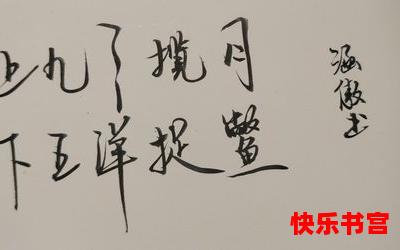 上九天揽月
下五洋捉鳖
涵傲书
快乐书宫